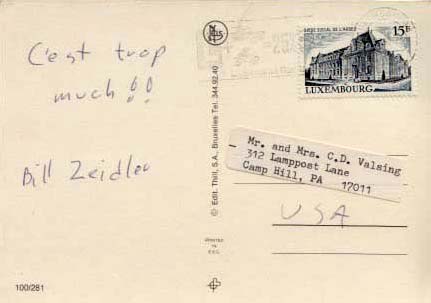 C'est trop
much!!
Bill Zeidler
100/281
© Edit. Thill, S.A., Bruxelles Tel. 344.92.40
PRINTED
IN
E.E.C.
SIEGE SOCIAL DE L'ARBED
15F
LUXEMBOURG
Mr. and Mrs. C.D. Valsing
312 Lamppost Lane
Camp Hill, PA 17011
USA